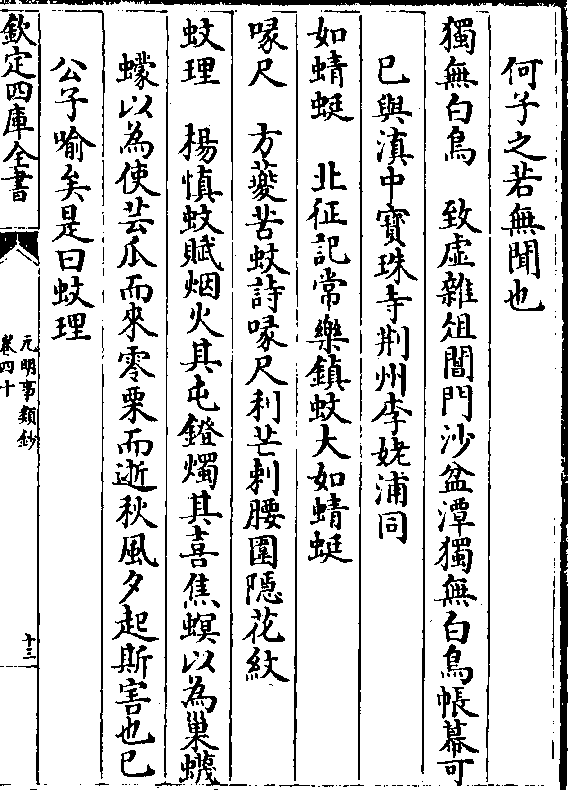 何子之若無聞也
獨無白鳥　致虛雜俎閶門沙盆潭獨無白鳥帳幕可
已與滇中寶珠寺荆州李姥浦同
如蜻蜓　北征記常樂鎮蚊大如蜻蜓
喙尺　方夔苦蚊詩喙尺利芒刺腰圍隱花紋
蚊理　楊慎蚊賦烟火其屯鐙燭其喜焦螟以為巢蠛
蠓以為使芸瓜而來零栗而逝秋風夕起斯害也已
公子喻矣是曰蚊理
欽定四庫全書
元明事類鈔
卷四十
十三